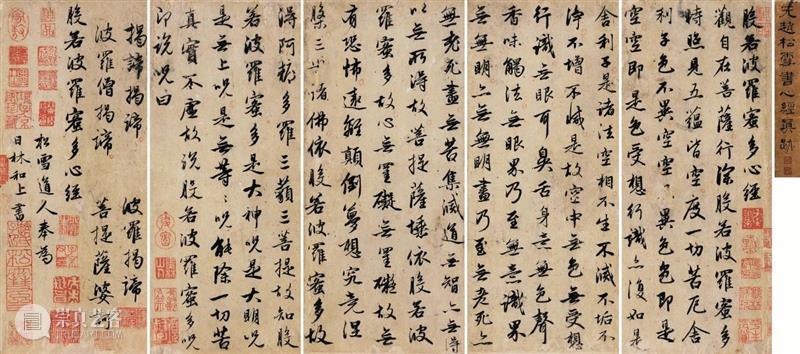 元趙松雪書心經真跡
般若波羅蜜多心經
觀自在菩薩行深般若波羅蜜多
時照見五蘊皆空度一切苦厄舍
利子色不異空空不異色色即是
空空即是色受想行識亦復如是
舍利子是諸法空相不生不滅不垢不
淨不增不減是故空中無色無受想
行識無眼耳鼻舌身意無色聲
香味觸法無眼界乃至無意識界
無無明亦無無明盡乃至無老死亦
無老死盡無苦集滅道無智亦無得
以無所得故菩提薩埵依般若波
羅蜜多故心無罣礙無罣礙故無
有恐怖遠離顛倒夢想究竟涅
槃三世諸佛依般若波羅蜜多故
得阿耨多羅三藐三菩提故知般
若波羅蜜多是大神呪是大明呪
是無上呪是無等々呪能除一切苦
真實不虛故說般若波羅蜜多呪
即說呪曰
揭諦揭諦 波羅揭諦
波羅僧揭諦 菩提薩婆訶
般若波羅蜜多心經
松雪道人奉為
日林和上書
崇真艺客